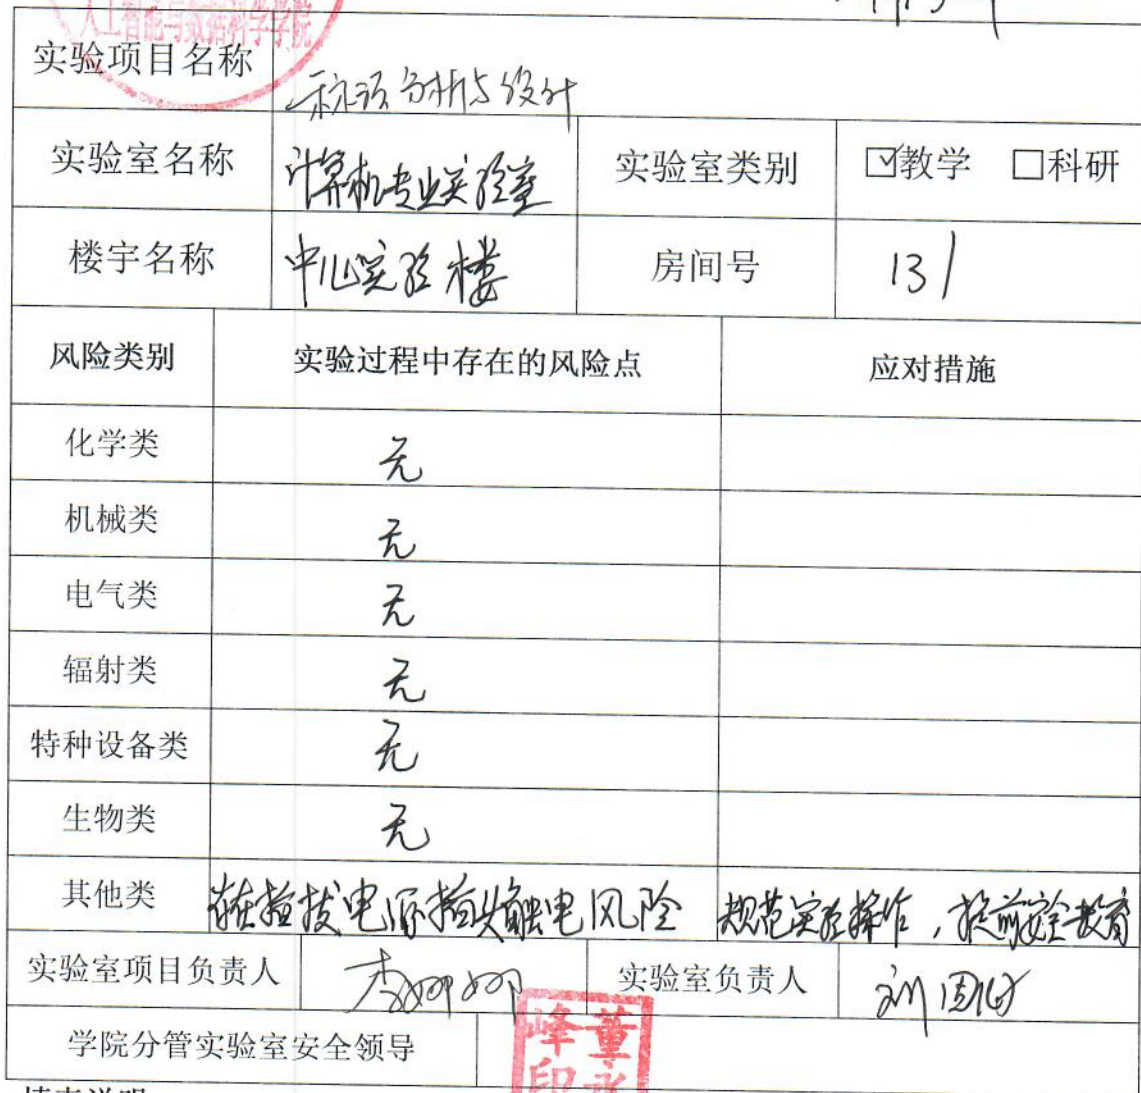 人工智能与数据科学学院
实验项目名称 分析与设计
实验室名称 计算机专业实验室 实验室类别 ☑教学 □科研
楼宇名称 中心实验楼 房间号 131
风险类别 实验过程中存在的风险点 应对措施
化学类 无
机械类 无
电气类 无
辐射类 无
特种设备类 无
生物类 无
其他类 存在插拔电源插头触电风险 规范实验操作,提前安全教育
实验室项目负责人 李娜娜 实验室负责人 刘
学院分管实验室安全领导 董永峰印
填表说明